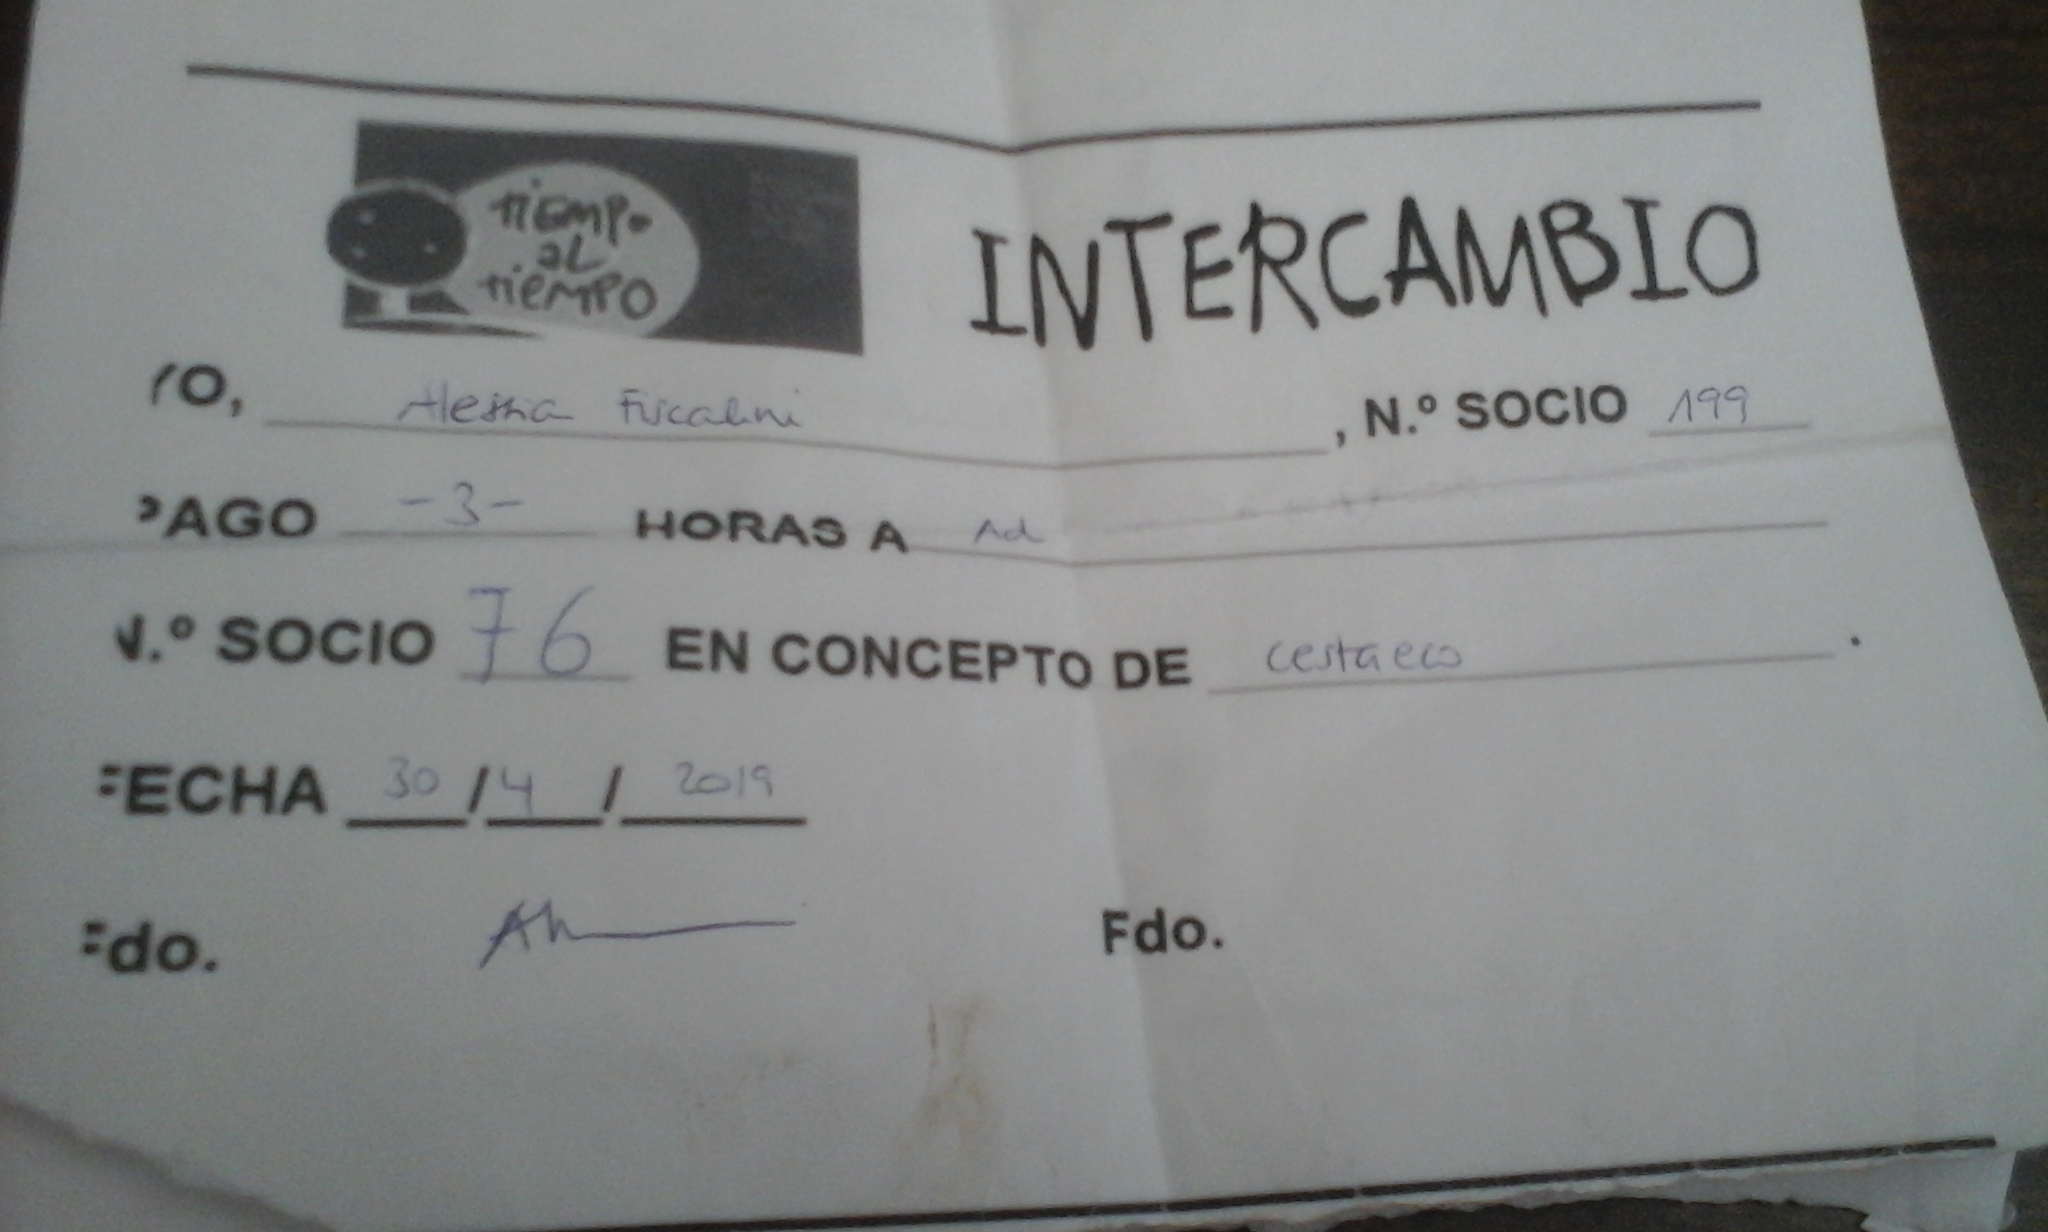 tiempo
al
tiempo
INTERCAMBIO
YO, Alessia , N.º SOCIO 199
PAGO -3- HORAS A
N.º SOCIO 76 EN CONCEPTO DE cesta eco .
FECHA 30 / 4 / 2019
Fdo. Fdo.